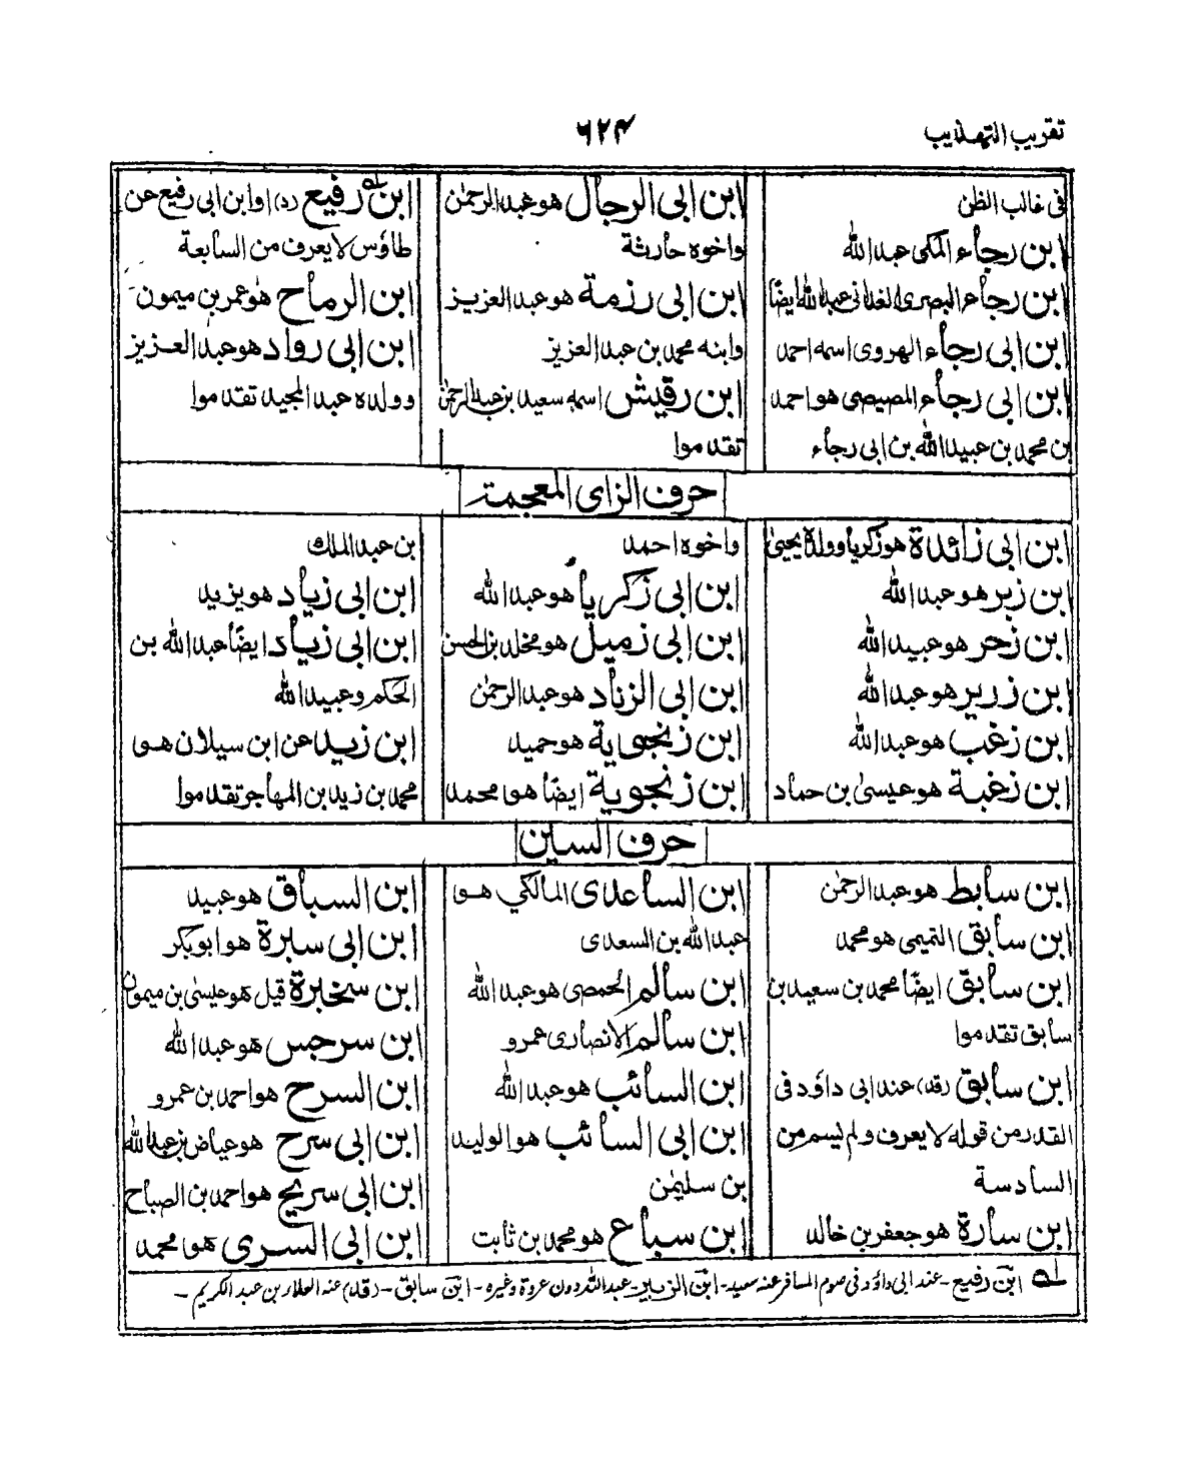 تقريب التهذيب
٦٢٤
فى غالب الظن
ابن رجاء المكى عبدالله
ابن رجاء البصرى الغدانى عبدالله ايضًا
ابن ابى رجاء الهروى اسمه احمد
ابن ابى رجاء المصيصى هو احمد
بن محمد بن عبيدالله بن ابى رجاء
ابن ابى الرجال هو عبد الرحمٰن
واخوه حارثة
ابن ابى رزمة هو عبد العزيز
وابنه محمد بن عبد العزيز
ابن رقيش اسمه سعيد بن عبد الرحمٰن
تقدموا
ابن رفيع (د) اوابن ابى رفيع عن
طاؤس لا يعرف من السابعة
ابن الرماح هو عمر بن ميمون
ابن ابى رواد هو عبد العزيز
وولده عبد المجيد تقدموا
حرف الزاى المعجمة
ابن ابى زائدة هو زكريا وولدة يحيىٰ
ابن زبر هو عبد الله
ابن زحر هو عبيد الله
ابن زرير هو عبد الله
ابن زغب هو عبدالله
ابن زغبة هو عيسىٰ بن حماد
واخوه احمد
ابن ابى زكريا هو عبد الله
ابن ابى زميل هو مخلد بن الحسن
ابن ابى الزناد هو عبد الرحمٰن
ابن زنجوية هو حميد
ابن زنجوية ايضًا هو محمد
بن عبد الملك
ابن ابى زياد هو يزيد
ابن ابى زياد ايضًا عبد الله بن
الحكم وعبيد الله
ابن زيد عن ابن سيلان هو
محمد بن زيد بن المهاجر تقدموا
حرف السين
ابن سابط هو عبد الرحمٰن
ابن سابق التميمى هو محمد
ابن سابق ايضًا محمد بن سعيد بن
سابق تقدموا
ابن سابق (قد) عند ابى داؤد فى
القدر من قوله لا يعرف ولم يسم من
السادسة
ابن سارة هو جعفر بن خالد
ابن الساعدى المالكي هو
عبد الله بن السعدى
ابن سالم الحمصى هو عبد الله
ابن سالم الانصارى عمرو
ابن السائب هو عبد الله
ابن ابى السائب هو الوليد
بن سليمٰن
ابن سباع هو محمد بن ثابت
ابن السباق هو عبيد
ابن ابى سبرة هو ابو بكر
ابن سخبرة قيل هو عيسىٰ بن ميمون
ابن سرجس هو عبد الله
ابن السرح هو احمد بن عمرو
ابن ابى سرح هو عياض بن عبد الله
ابن ابى سريج هو احمد بن الصباح
ابن ابى السرى هو محمد
له ابن رفيع - عند ابى داؤد فى صوم المسافر عنه سعيد - ابن الزبير - عبد الله دون عروة وغيره - ابن سابق - (قد) عنه العلاء بن عبد الكريم -